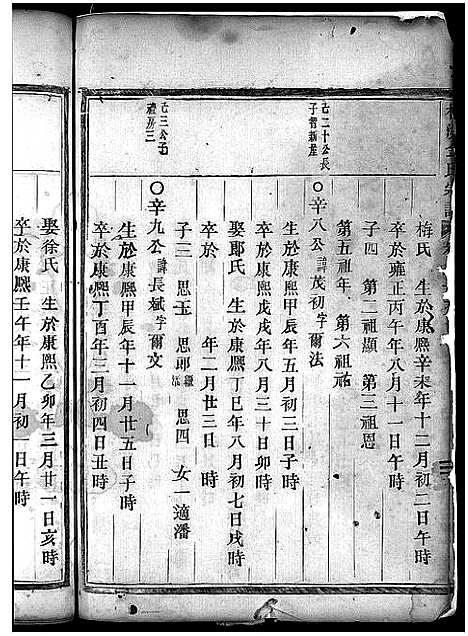 梅氏 生於康熙辛未年十二月初二日午時
卒於雍正丙午年八月十一日午時
子四 第二祖顯 第三祖恩
第五祖年 第六祖祐
辛八公諱茂初字爾法
七二十公長
子晉新產
生於康熙辛亥年五月初二日子時
卒於康熙戊戌年八月三十日卯時
娶鄢氏 生於康熙丁巳年八月初七日戌時
卒於 年二月廿三日 時
子三 思玉 思耶 思四 女一適潘
辛九公諱長斌字爾文
七三公子
禮房三
生於康熙甲辰年十一月廿五日子時
卒於康熙丁酉年三月初四日丑時
娶徐氏 生於康熙乙卯年三月廿一日亥時
卒於康熙壬午年十一月初一日午時